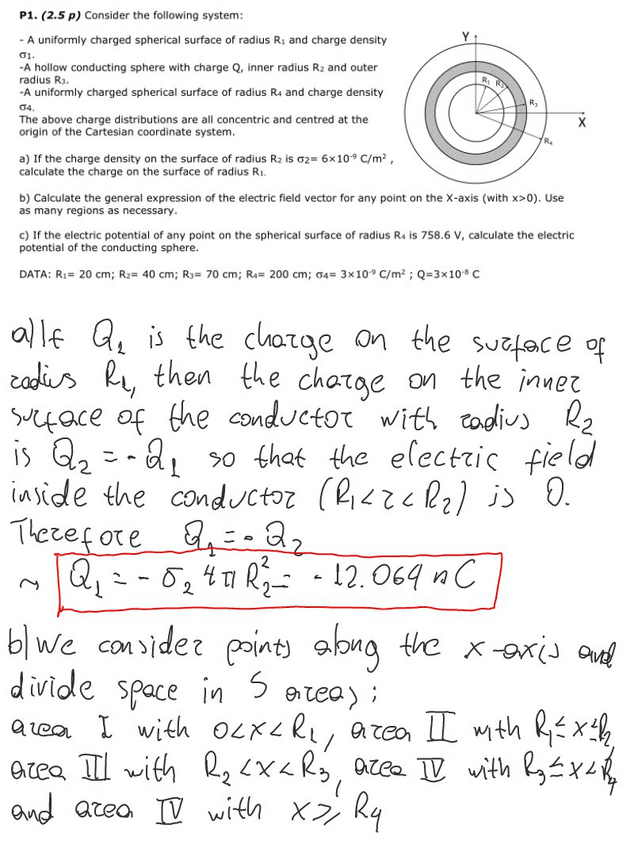 P1. (2.5 p) Consider the following system:
- A uniformly charged spherical surface of radius R₁ and charge density
σ₁.
-A hollow conducting sphere with charge Q, inner radius R₂ and outer
radius R₃.
-A uniformly charged spherical surface of radius R₄ and charge density
σ₄.
The above charge distributions are all concentric and centred at the
origin of the Cartesian coordinate system.
Y
R₁ R₂
R₃
X
R₄
a) If the charge density on the surface of radius R₂ is σ₂= 6×10⁻⁹ C/m² ,
calculate the charge on the surface of radius R₁.
b) Calculate the general expression of the electric field vector for any point on the X-axis (with x>0). Use
as many regions as necessary.
c) If the electric potential of any point on the spherical surface of radius R₄ is 758.6 V, calculate the electric
potential of the conducting sphere.
DATA: R₁= 20 cm; R₂= 40 cm; R₃= 70 cm; R₄= 200 cm; σ₄= 3×10⁻⁹ C/m² ; Q=3×10⁻⁸ C
a) If Q₁ is the charge on the surface of
radius R₁, then the charge on the inner
surface of the conductor with radius R₂
is Q₂ = -Q₁ so that the electric field
inside the conductor (R₁<r<R₂) is 0.
Therefore Q₁ = - Q₂
~ Q₁ = - σ₂ 4π R₂² = - 12.064 nC
b) We consider points along the x-axis and
divide space in 5 areas:
area I with 0<x<R₁, area II with R₁≤x≤R₂
area III with R₂<x<R₃, area IV with R₃≤x<R₄
and area IV with x≥R₄